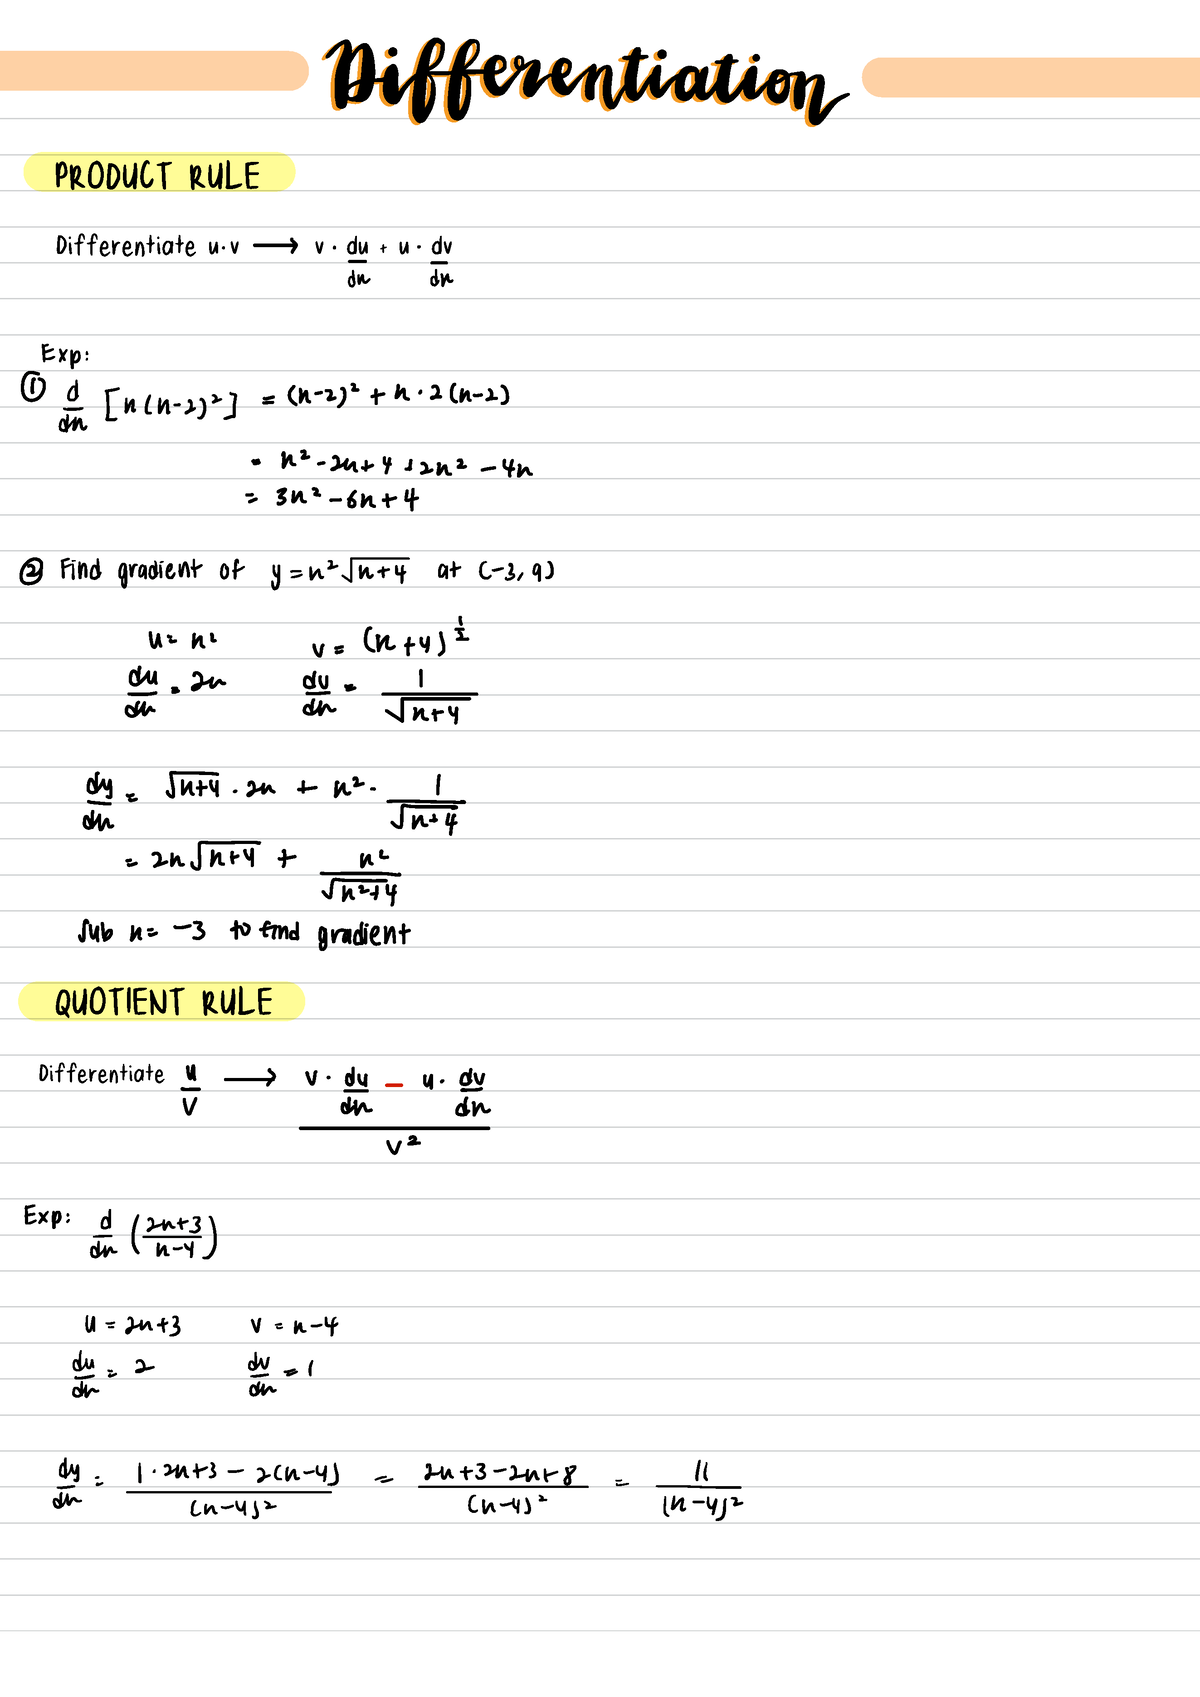 Differentiation
PRODUCT RULE
Differentiate u·v ⟶ v · du/dx + u · dv/dx
Exp:
① d/dx [x(x-2)²] = (x-2)² + x · 2(x-2)
= x² - 2x + 4 + 2x² - 4x
= 3x² - 6x + 4
② Find gradient of y = x²√(x+4) at (-3, 9)
u = x² v = (x+4)^(1/2)
du/dx = 2x dv/dx = 1/√(x+4)
dy/dx = √(x+4) · 2x + x² · 1/√(x+4)
= 2x√(x+4) + x²/√(x²+4)
Sub x = -3 to find gradient
QUOTIENT RULE
Differentiate u/v ⟶ (v · du/dx - u · dv/dx)/v²
Exp: d/dx ((2x+3)/(x-4))
u = 2x+3 v = x-4
du/dx = 2 dv/dx = 1
dy/dx = (1 · 2x+3 - 2(x-4))/(x-4)² = (2x+3-2x+8)/(x-4)² = 11/(x-4)²